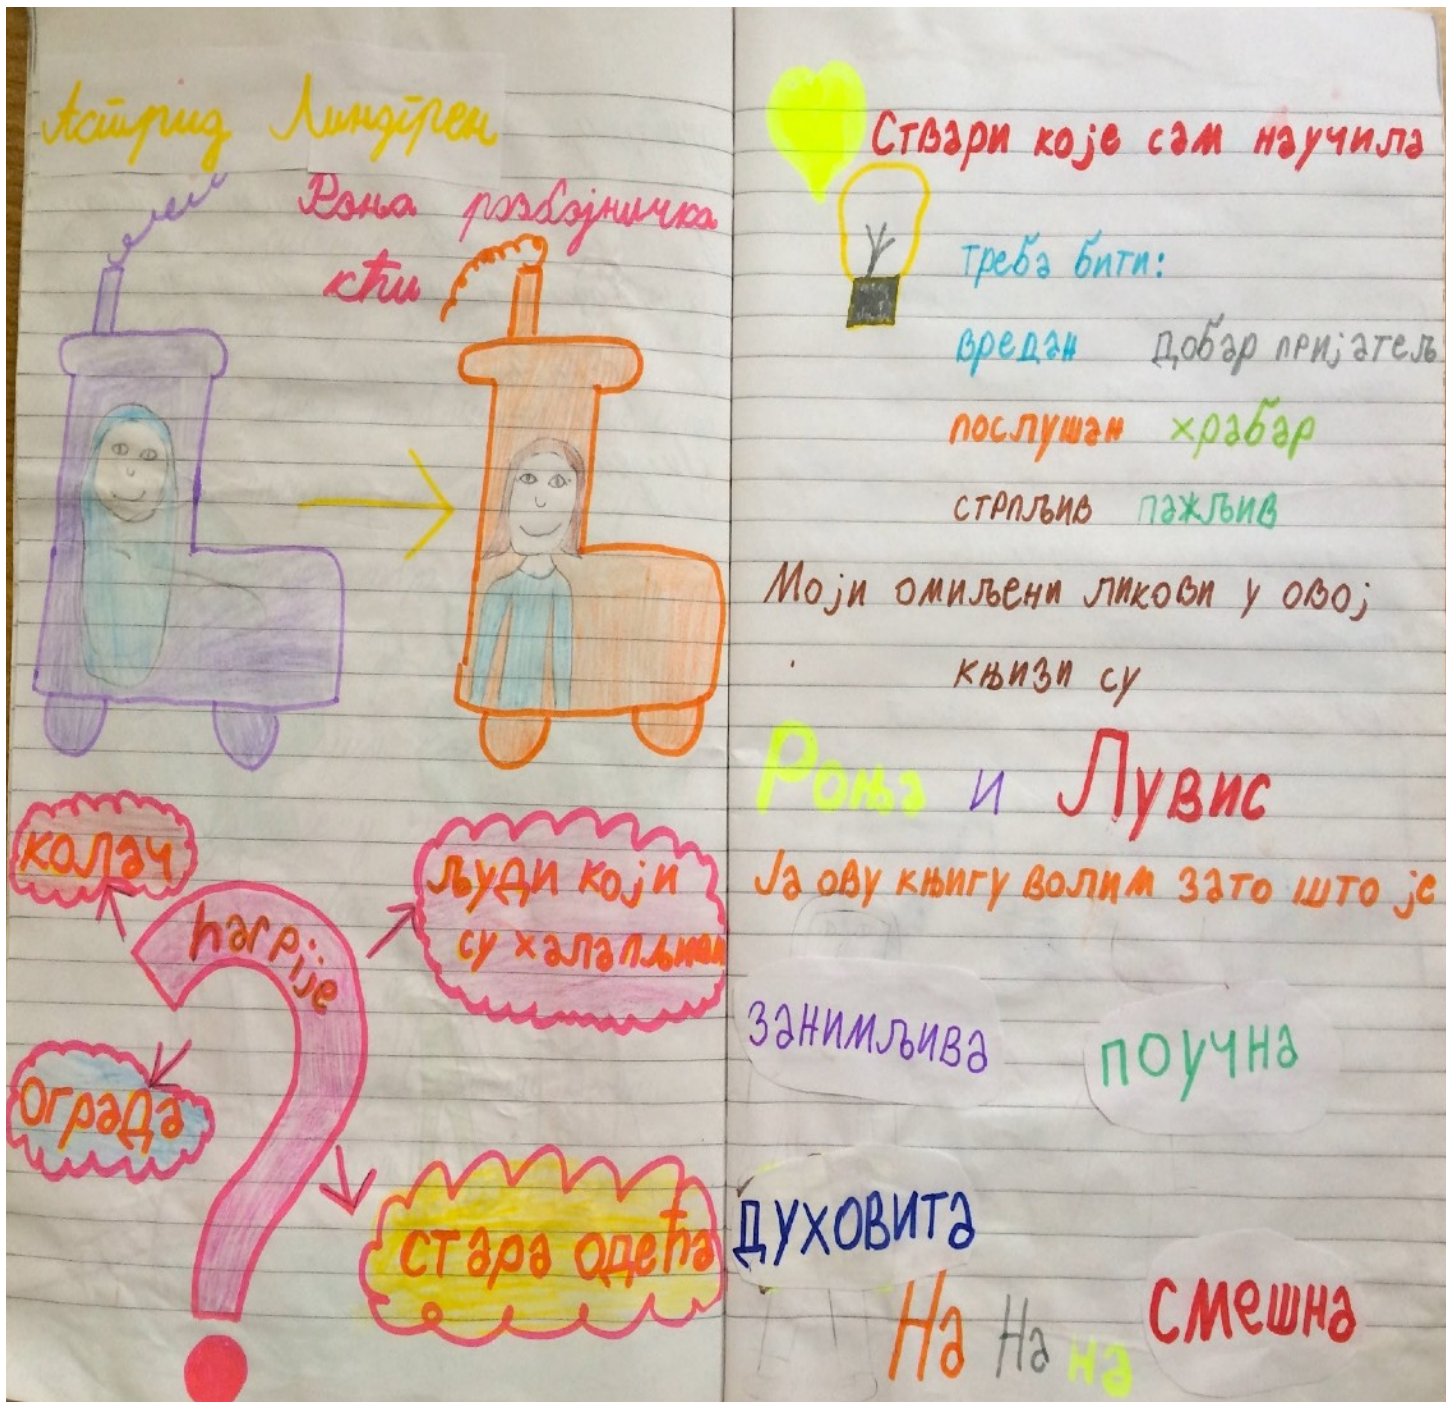 Астрид Линдгрен
Роња разбојничка
кћи
колач
ћагрије
људи који
су
ограда
стара одећа
Ствари које сам научила
треба бити:
вредан добар пријатељ
послушан храбар
стрпљив пажљив
Моји омиљени ликови у овој
књизи су
Роња и Лувис
Ја ову књигу волим зато што је
занимљива поучна
духовита
На На на смешна